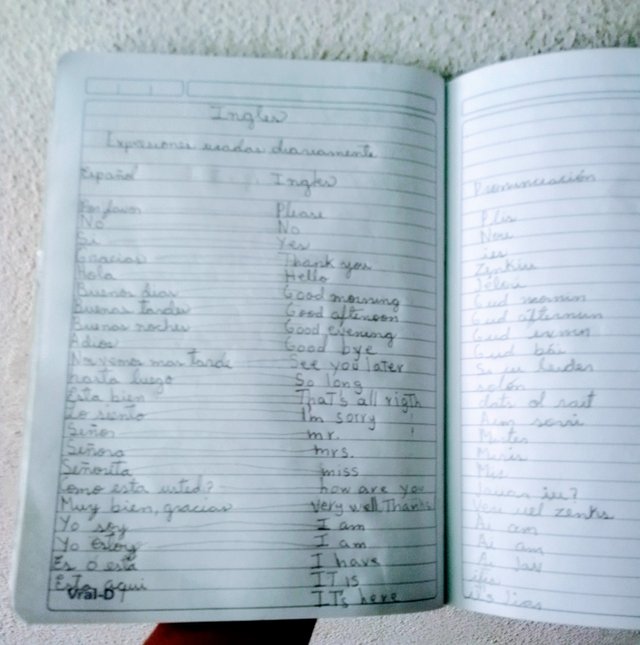 Ingles
Expresiones usadas diariamente
Español Ingles Pronunciación
Por favor Please Plis
No No Nou
Si Yes ies
Gracias Thank you Zenkiu
Hola Hello Jélou
Buenos dias Good morning Gud mornin
Buenas tardes Good afteroon Gud afternun
Buenas noches Good evening Gud
Adios Good bye Gud bái
Nos vemos mas tarde See you later Si iu
hasta luego So long solón
Esta bien That's all rigth dats ol rait
Lo siento I'm sorry Aem sorri
Señor mr. Mister
Señora mrs. Miss
Señorita miss Mis
Como esta usted? how are you iu?
Muy bien, gracias Very well, Thanks Veri uel zenks
Yo soy I am Ai am
Yo estoy I am Ai am
Es o esta I have Ai
Esta aqui IT is
IT's here
Vral-D